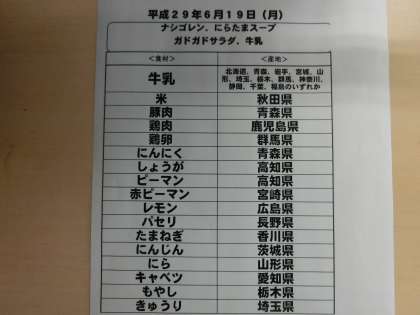 平成29年6月19日（月）
ナシゴレン、にらたまスープ
ガドガドサラダ、牛乳
＜食材＞ ＜産地＞
牛乳 北海道、青森、岩手、宮城、山
形、埼玉、栃木、群馬、神奈川、
静岡、千葉、福島のいずれか
米 秋田県
豚肉 青森県
鶏肉 鹿児島県
鶏卵 群馬県
にんにく 青森県
しょうが 高知県
ピーマン 高知県
赤ピーマン 宮崎県
レモン 広島県
パセリ 長野県
たまねぎ 香川県
にんじん 茨城県
にら 山形県
キャベツ 愛知県
もやし 栃木県
きゅうり 埼玉県